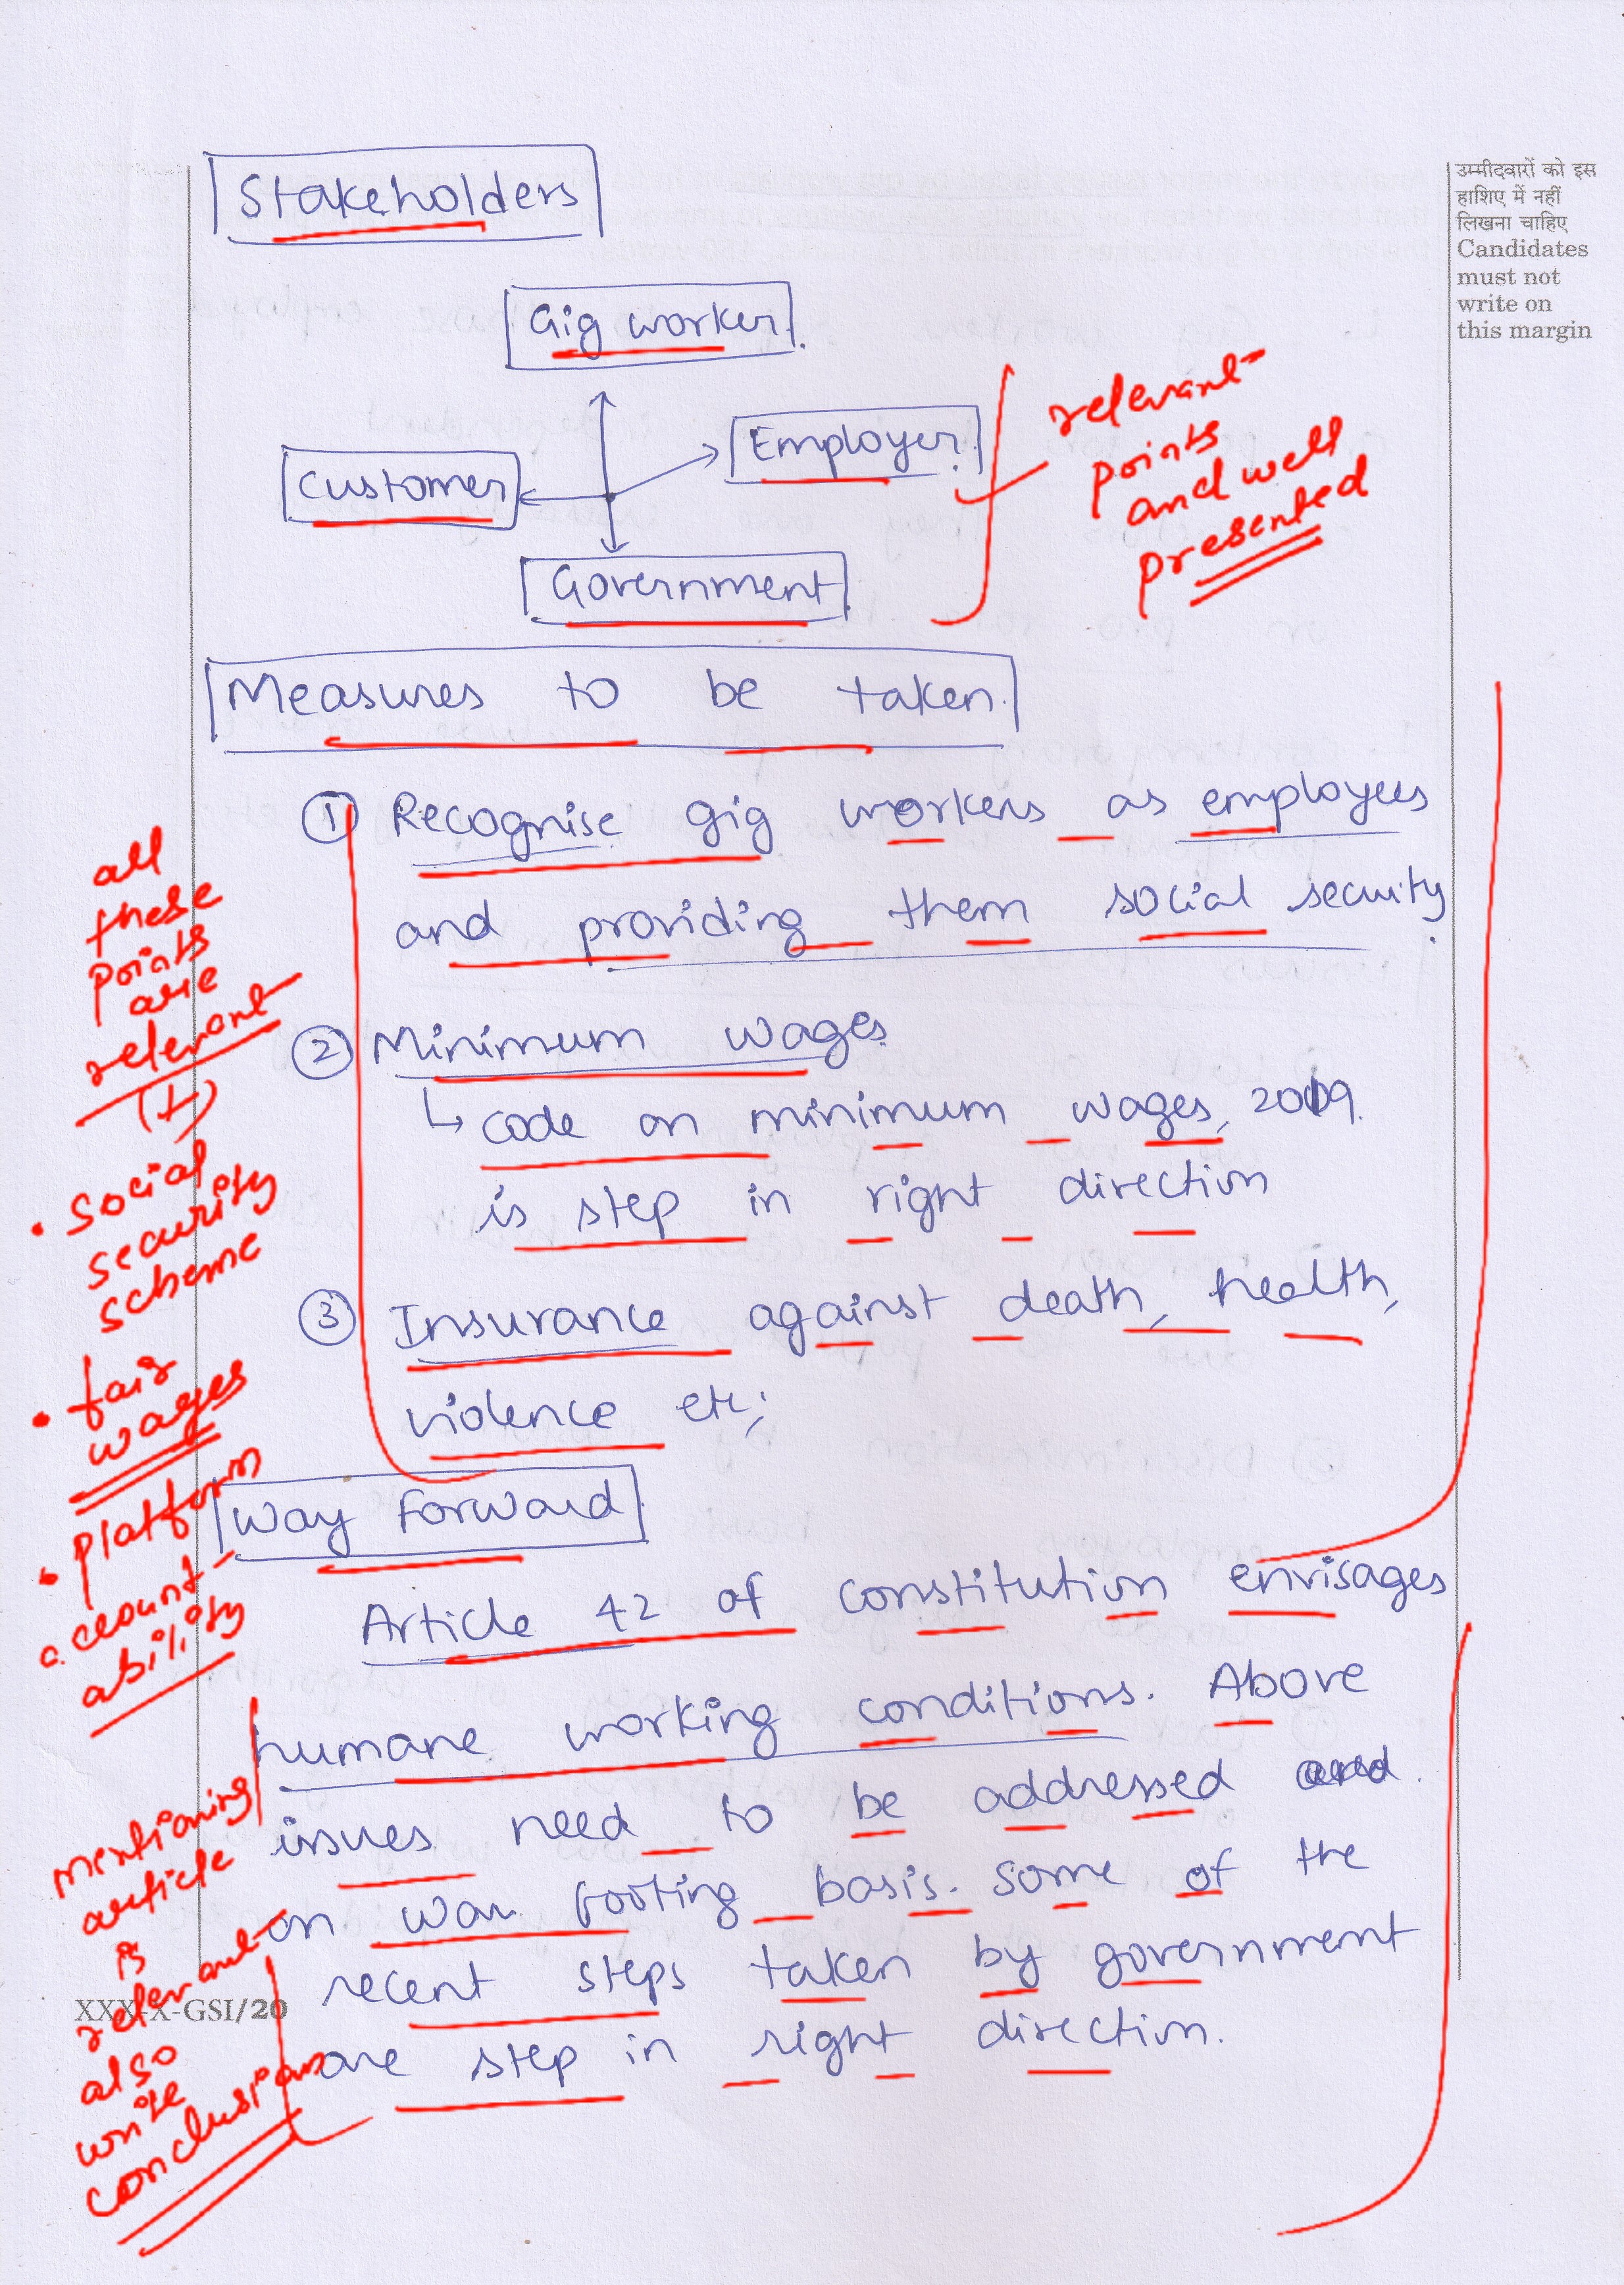 Stakeholders
उम्मीदवारों को इस
हाशिए में नहीं
लिखना चाहिए
Candidates
must not
write on
this margin
Gig worker.
Employer.
Customer
Government.
relevant
points
and well
presented
Measures to be taken.
① Recognise gig workers as employees
and providing them social security.
② Minimum wages
↳ code on minimum wages, 2019.
is step in right direction
③ Insurance against death, health,
violence etc;
all
these
points
are
relevant
(+)
• social
security
scheme
• fair
wages
• platform
account-
ability
Way Forward
Article 42 of constitution envisages
humane working conditions. Above
issues need to be addressed
on war footing basis. Some of the
recent steps taken by government
are step in right direction.
mentioning
article
is
relevant
also
write
conclusion
XXX-X-GSI/20